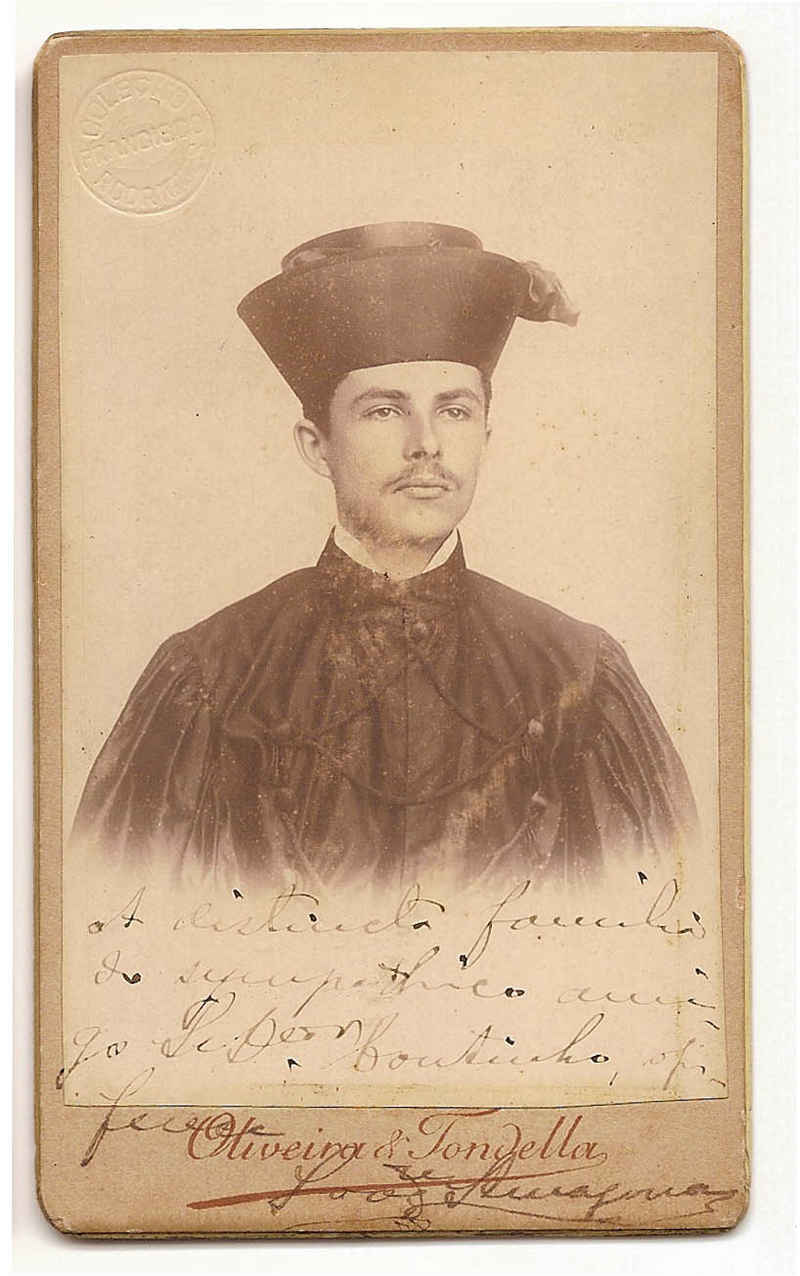 COLECÇÃO
FRANCISCO
RODRIGUES
A distincta familia
do sympathico ami-
go Coutinho, of-
ferece
Oliveira & Tondella